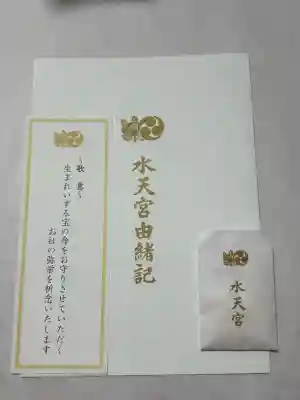 水天宮由緒記
〜歌意〜
生まれいずる宝の命をお守りさせていただく
お社の弥栄を祈念いたします
水天宮